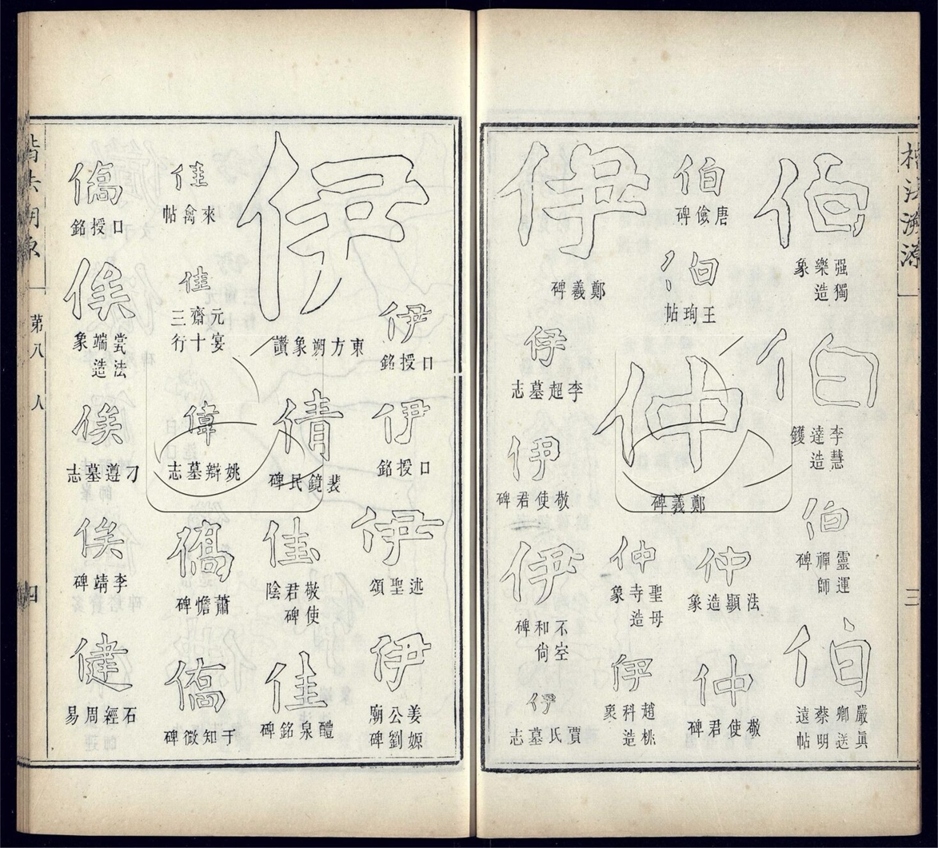 楷法溯源
一
三
伯
强獨樂造象
伯
李慧達造鑊
伯
靈運禪師碑
伯
眞卿送蔡明遠帖
伯
唐儉碑
伯
王珣帖
仲
鄭羲碑
仲
法顯造象
仲
敬使君碑
仲
聖母寺造象
伊
趙桃科造象
伊
鄭羲碑
伊
李超墓志
伊
敬使君碑
伊
不空和尙碑
伊
賈氏墓志
伊
東方朔象讚
伊
口授銘
伊
口授銘
伊
述聖頌
伊
姜嫄公劉廟碑
倩
裴鏡民碑
佳
敬使君碑陰
佳
醴泉銘
佳
來禽帖
佳
元宴齋三十行
偉
姚辯墓志
僑
蕭憺碑
僑
于知微碑
僑
口授銘
俟
法端造象
俟
刁遵墓志
俟
李靖碑
健
石經周易
楷法溯源
一
第八
人
四